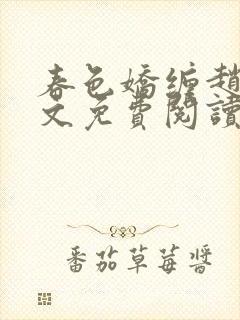 春色嬌纏趙
文免費閱讀
番茄草莓醬